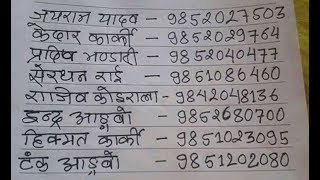 जयराम यादव - 9852027503
केदार कार्की - 9852029764
प्रदिप भण्डारी - 9852040477
सेरधन राई - 9851086460
राजिव कोइराला - 9842048136
इन्द्र आङ्बो - 9852680700
हिक्मत कार्की - 9851023095
टंक आङ्बो - 9851202080